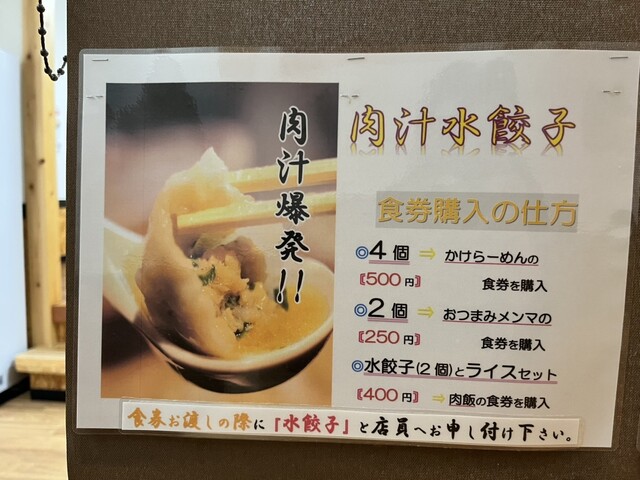 肉汁爆発!!
肉汁水餃子
食券購入の仕方
◎4個⇒かけらーめんの
【500円】 食券を購入
◎2個⇒おつまみメンマの
【250円】 食券を購入
◎水餃子(2個)とライスセット
【400円】⇒肉飯の食券を購入
食券お渡しの際に「水餃子」と店員へお申し付け下さい。